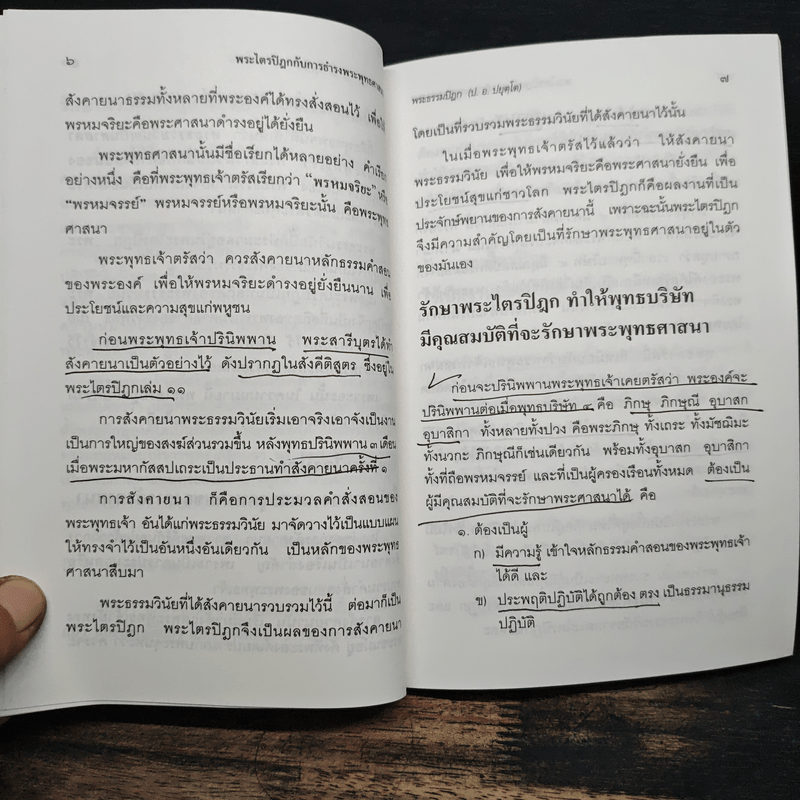 ๖
พระไตรปิฎกกับการธำรงพระพุทธศาสนา
สังคายนาธรรมทั้งหลายที่พระองค์ได้ทรงสั่งสอนไว้ เพื่อให้
พรหมจริยะคือพระศาสนาดำรงอยู่ได้ยั่งยืน
พระพุทธศาสนานั้นมีชื่อเรียกได้หลายอย่าง คำเรียก
อย่างหนึ่ง คือที่พระพุทธเจ้าตรัสเรียกว่า “พรหมจริยะ” หรือ
“พรหมจรรย์” พรหมจรรย์หรือพรหมจริยะนั้น คือพระพุทธ
ศาสนา
พระพุทธเจ้าตรัสว่า ควรสังคายนาหลักธรรมคำสอน
ของพระองค์ เพื่อให้พรหมจริยะดำรงอยู่ยั่งยืนนาน เพื่อ
ประโยชน์และความสุขแก่พหูชน
ก่อนพระพุทธเจ้าปรินิพพาน พระสารีบุตรได้ทำ
สังคายนาเป็นตัวอย่างไว้ ดังปรากฏในสังคีติสูตร ซึ่งอยู่ใน
พระไตรปิฎกเล่ม ๑๑
การสังคายนาพระธรรมวินัยเริ่มเอาจริงเอาจังเป็นงาน
เป็นการใหญ่ของสงฆ์ส่วนรวมขึ้น หลังพุทธปรินิพพาน ๓ เดือน
เมื่อพระมหากัสสปเถระเป็นประธานทำสังคายนาครั้งที่ ๑
การสังคายนา ก็คือการประมวลคำสั่งสอนของ
พระพุทธเจ้า อันได้แก่พระธรรมวินัย มาจัดวางไว้เป็นแบบแผน
ให้ทรงจำไว้เป็นอันหนึ่งอันเดียวกัน เป็นหลักของพระพุทธ
ศาสนาสืบมา
พระธรรมวินัยที่ได้สังคายนารวบรวมไว้นี้ ต่อมาก็เป็น
พระไตรปิฎก พระไตรปิฎกจึงเป็นผลของการสังคายนา
พระธรรมปิฎก (ป. อ. ปยุตฺโต)
๗
โดยเป็นที่รวบรวมพระธรรมวินัยที่ได้สังคายนาไว้นั้น
ในเมื่อพระพุทธเจ้าตรัสไว้แล้วว่า ให้สังคายนา
พระธรรมวินัย เพื่อให้พรหมจริยะคือพระศาสนายั่งยืน เพื่อ
ประโยชน์สุขแก่ชาวโลก พระไตรปิฎกก็คือผลงานที่เป็น
ประจักษ์พยานของการสังคายนานี้ เพราะฉะนั้นพระไตรปิฎก
จึงมีความสำคัญโดยเป็นที่รักษาพระพุทธศาสนาอยู่ในตัว
ของมันเอง
รักษาพระไตรปิฎก ทำให้พุทธบริษัท
มีคุณสมบัติที่จะรักษาพระพุทธศาสนา
ก่อนจะปรินิพพานพระพุทธเจ้าเคยตรัสว่า พระองค์จะ
ปรินิพพานต่อเมื่อพุทธบริษัท ๔ คือ ภิกษุ ภิกษุณี อุบาสก
อุบาสิกา ทั้งหลายทั้งปวง คือพระภิกษุ ทั้งเถระ ทั้งมัชฌิมะ
ทั้งนวกะ ภิกษุณีก็เช่นเดียวกัน พร้อมทั้งอุบาสก อุบาสิกา
ทั้งที่ถือพรหมจรรย์ และที่เป็นผู้ครองเรือนทั้งหมด ต้องเป็น
ผู้มีคุณสมบัติที่จะรักษาพระศาสนาได้ คือ
๑. ต้องเป็นผู้
ก) มีความรู้ เข้าใจหลักธรรมคำสอนของพระพุทธเจ้า
ได้ดี และ
ข) ประพฤติปฏิบัติได้ถูกต้อง ตรง เป็นธรรมานุธรรม
ปฏิบัติ